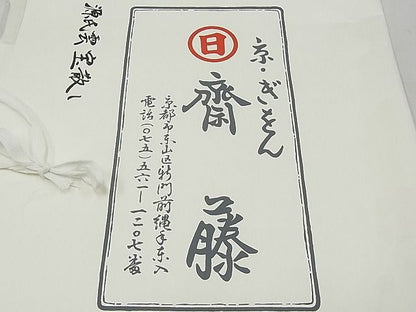 京・ぎをん
日
齋藤
京都市東山区新門前縄手東入
電話(〇七五)五六一ー一二〇七番
源氏雲宝散し